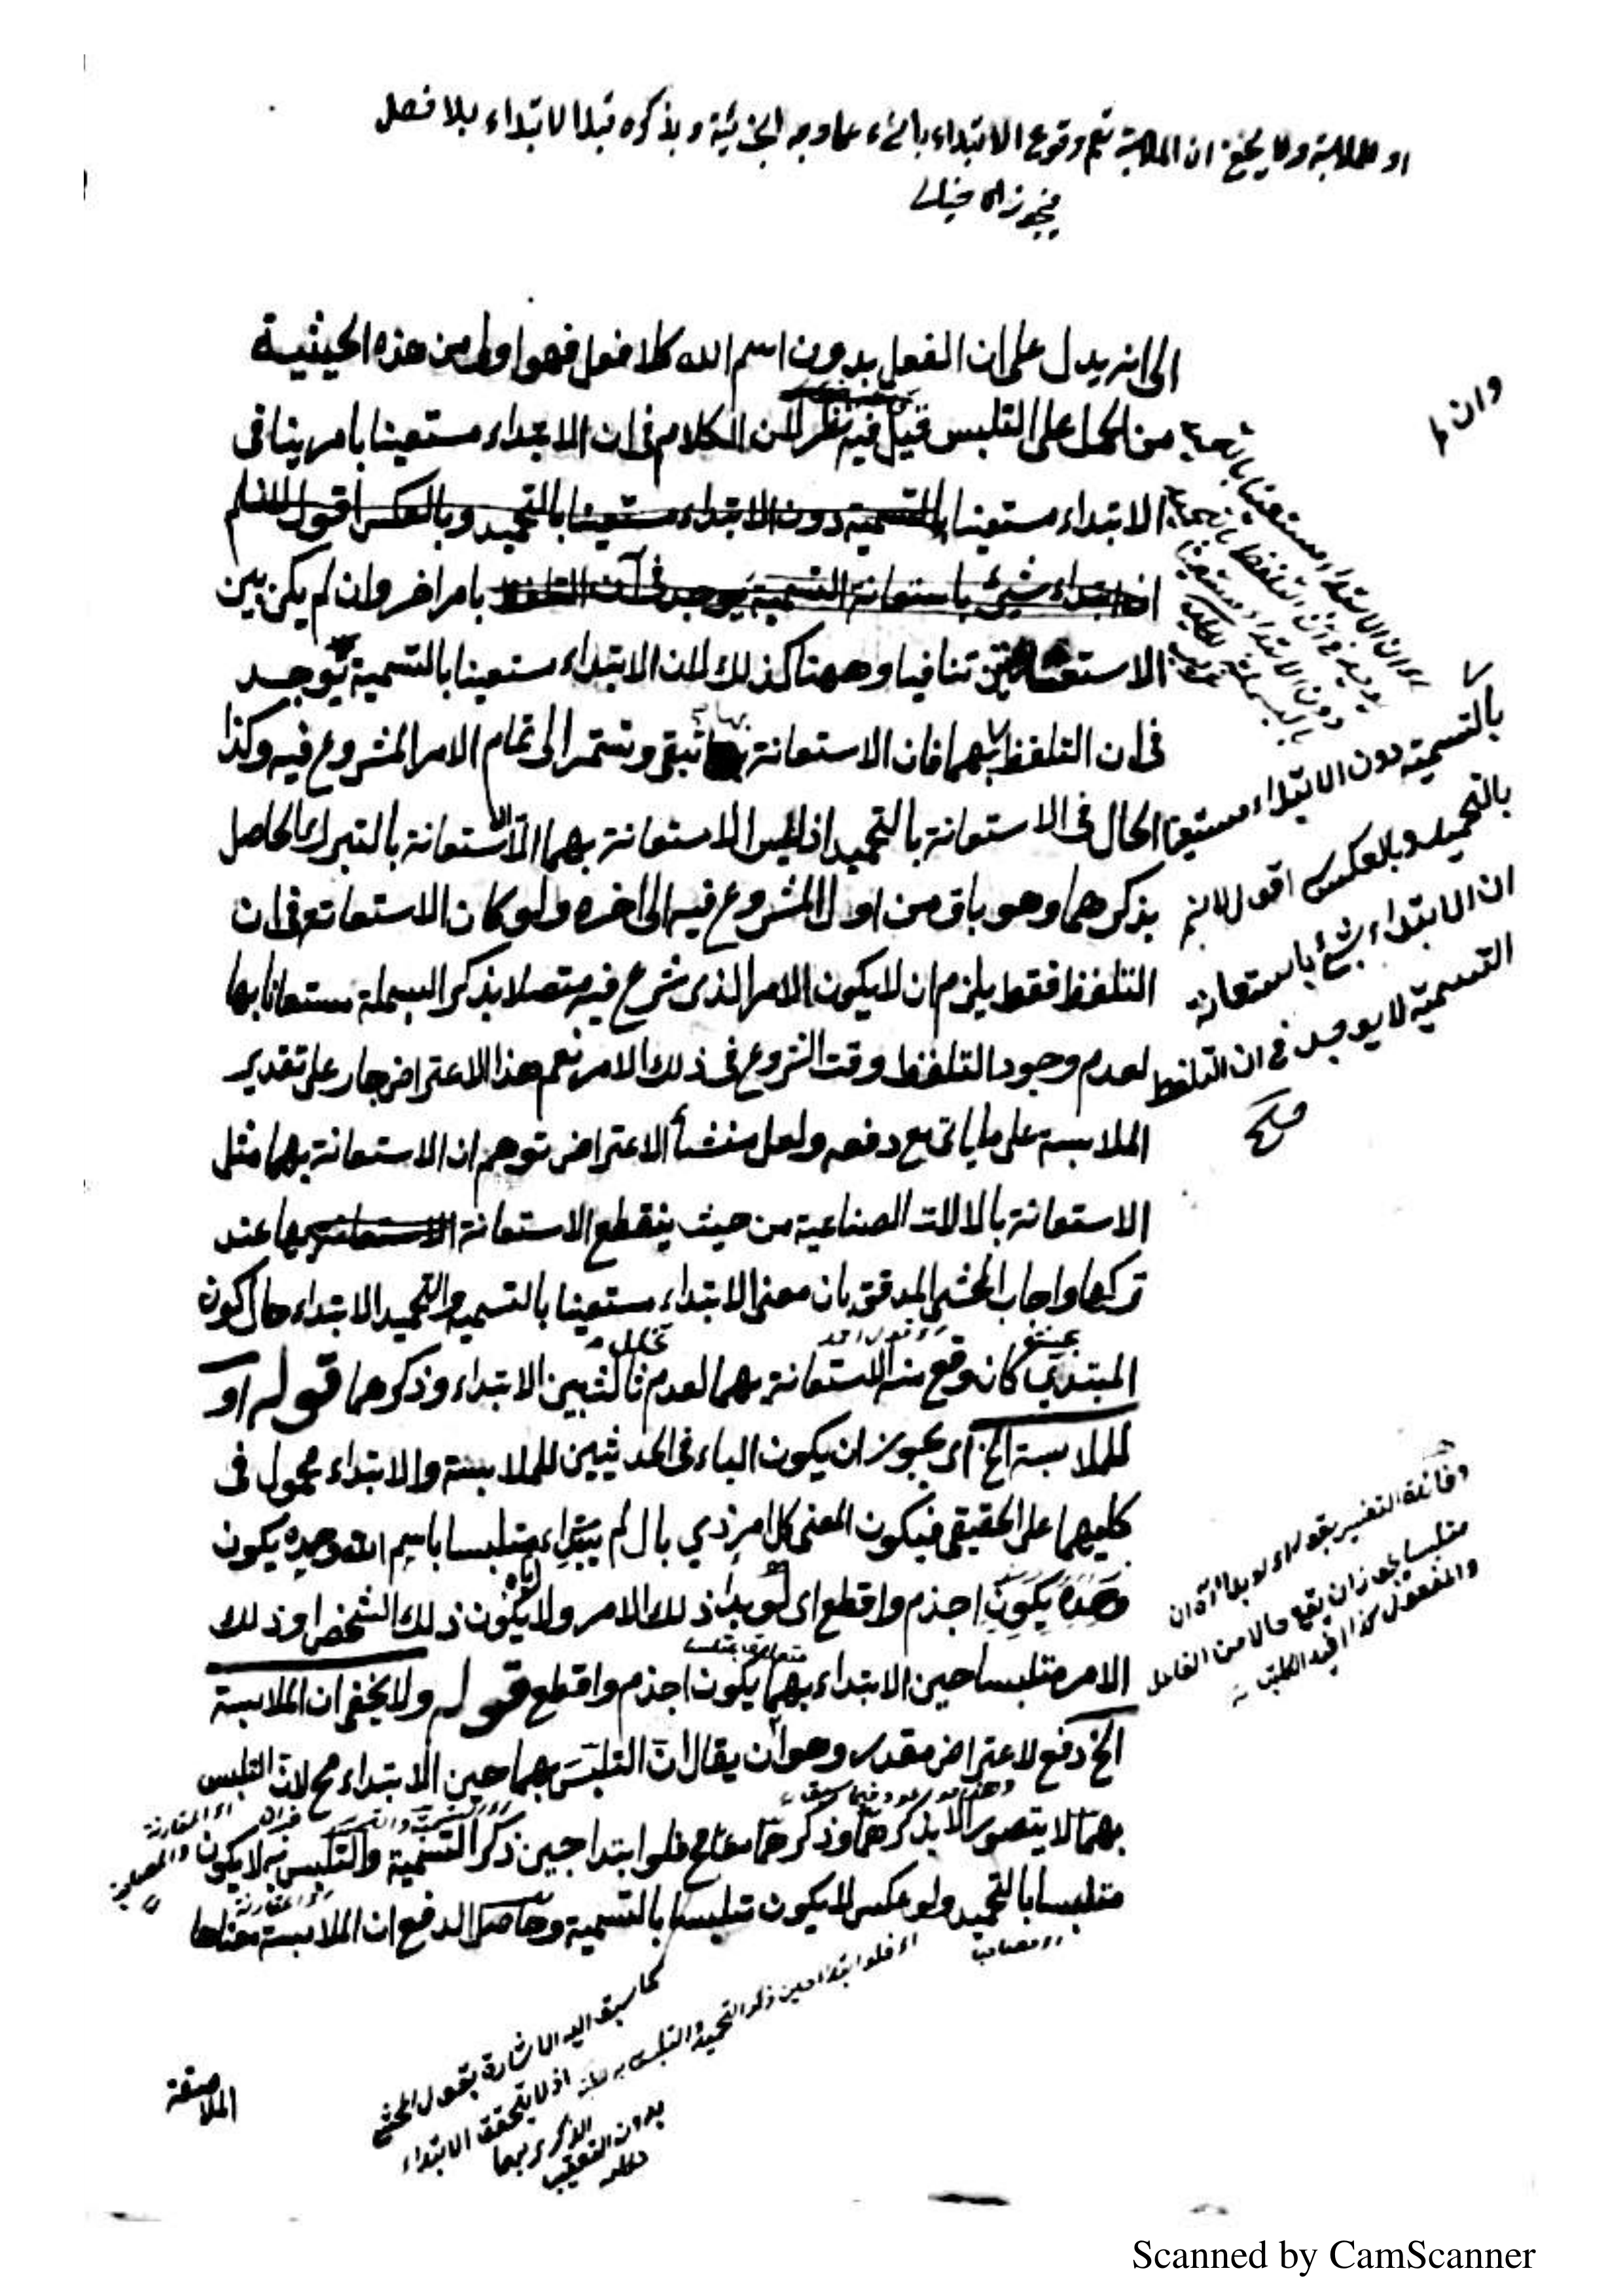 او للملابسة ولا يخفى ان الملابسة تعم وقوع الابتداء بالشيء على وجه الجزئية وبذكره قبل الابتداء بلا فصل
الى انه يدل على ان الفعل بدون اسم الله كلا فعل فهو اولى من هذه الحيثية
من الحمل على التلبس قيل فيه نظر لان الكلام فى ان الابتداء مستعينا بامر ينافى
الابتداء مستعينا بالتسمية دون الابتداء مستعينا بالتحميد وبالعكس اقول لانم
ان ابتداء شيئ باستعانة التسمية يوجد فى آن التلفظ بامر اخر وان لم يكن بين
الاستعانتين تنافيا وههنا كذلك لان الابتداء مستعينا بالتسمية يوجد
فى ان التلفظ بهما فان الاستعانة بهما تبقى وتستمر الى تمام الامر المشروع فيه وكذا
الحال فى الاستعانة بالتحميد اذ ليس الاستعانة بهما الا الاستعانة بالتبرك الحاصل
بذكرهما وهو باق من اول المشروع فيه الى اخره ولو كان الاستعانة فى ان
التلفظ فقط يلزم ان لا يكون الامر الذى شرع فيه متصلا بذكر البسملة مستعانا بها
لعدم وجود التلفظ وقت الشروع فى ذلك الامر نعم هذا الاعتراض جار على تقدير
الملابسة على ما ياتى مع دفعه ولعل منشأ الاعتراض توهم ان الاستعانة بهما مثل
الاستعانة بالالات الصناعية من حيث ينقطع الاستعانة الاستعانة بها عند
تركها واجاب المحشى المدقق بان معنى الابتداء مستعينا بالتسمية والتحميد الابتداء حال كون
المبتدي كان وقع منه الاستعانة بهما لعدم ثالث بين الابتداء وذكرهما قوله او
للملابسة الخ اى يجوز ان يكون الباء فى الحديثين للملابسة والابتداء محمول فى
كليهما على الحقيقى فيكون المعنى كل امر ذي بال لم يبتداء متلبسا باسم الله وحمده يكون
وحمده يكون اجذم واقطع اى لو بدأ ذلك الامر ولا يكون ذلك الشخص او ذلك
الامر متلبسا حين الابتداء بهما يكون اجذم واقطع قوله ولا يخفى ان الملابسة
الخ دفع لاعتراض مقدر وهو ان يقال ان التلبس بهما حين الابتداء مح لان التلبس
بهما لا يتصور الا بذكرهما وذكرهما معا مح فلو ابتدا حين ذكر التسمية والتلبس به لا يكون
متلبسا بالتحميد ولو عكس لا يكون متلبسا بالتسمية وحاصل الدفع ان الملابسة معناها
الملاصقة
وان لم
بالتسمية دون الابتداء مستعينا
بالتحميد وبالعكس اقول لانم
ان الابتداء بشئ باستعانة
التسمية لا يوجد فى ان التلفظ
صح
وفائدة التفسير بقوله اى لو بدأ ان
متلبسا يجوز ان يقع حالا من الفاعل
والمفعول كذا افيد
اى المقارنة
والمصاحبة
اى فلو ابتدا حين ذكر التحميد والتلبس به
كما سبق اليه الاشارة بقول المحشى
اذ لا يتحقق الابتداء
بدون التعقيب
Scanned by CamScanner